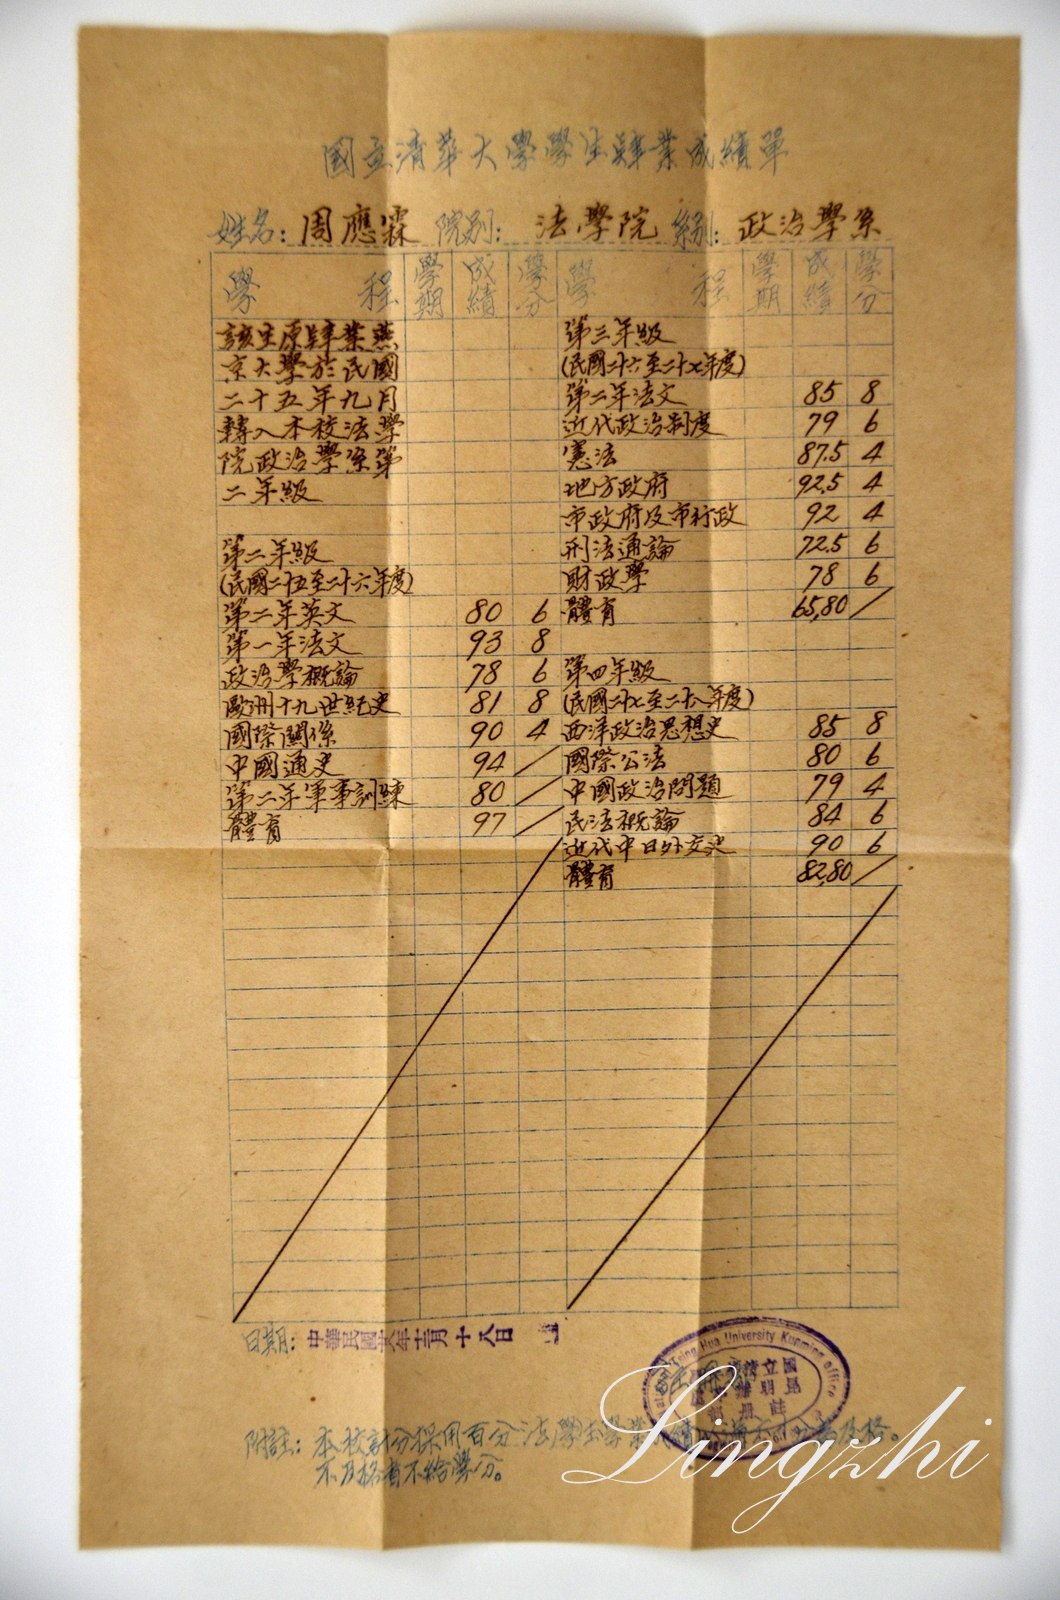 國立清華大學學生肄業成績單
姓名：周應霖 院別：法學院 系別：政治學系
學程 學期 成績 學分 學程 學期 成績 學分
該生原肄業燕
京大學於民國
二十五年九月
轉入本校法學
院政治學系第
二年級
第二年級
(民國二十五至二十六年度)
第二年英文 80 6
第一年法文 93 8
政治學概論 78 6
歐洲十九世紀史 81 8
國際關係 90 4
中國通史 94 /
第二年軍事訓練 80 /
體育 97 /
第三年級
(民國二十六至二十七年度)
第二年法文 85 8
近代政治制度 79 6
憲法 87.5 4
地方政府 92.5 4
市政府及市行政 92 4
刑法通論 72.5 6
財政學 78 6
體育 65,80 /
第四年級
(民國二十七至二十八年度)
西洋政治思想史 85 8
國際公法 80 6
中國政治問題 79 4
民法概論 84 6
近代中日外交史 90 6
體育 82,80 /
日期：中華民國 年十二月十八日
Tsing Hua University Kunming office
附註：本校計分採用百分法學生學業成績 為及格。
不及格者不給學分。
Lingzhi